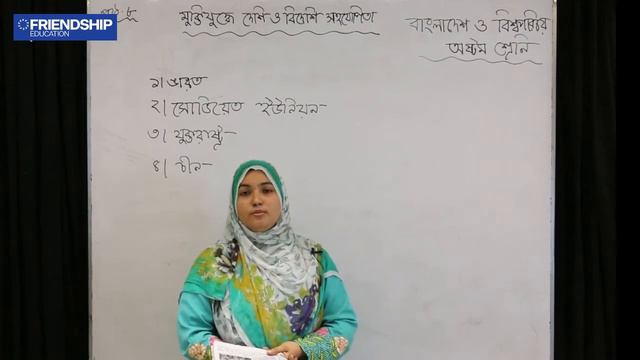 FRIENDSHIP
EDUCATION
পাঠ: ৮
মুক্তিযুদ্ধে দেশি ও বিদেশি সহযোগিতা
বাংলাদেশ ও বিশ্বপরিচয়
অষ্টম শ্রেনি
১। ভারত
২। সোভিয়েত ইউনিয়ন-
৩। যুক্তরাষ্ট্র-
৪। চীন-